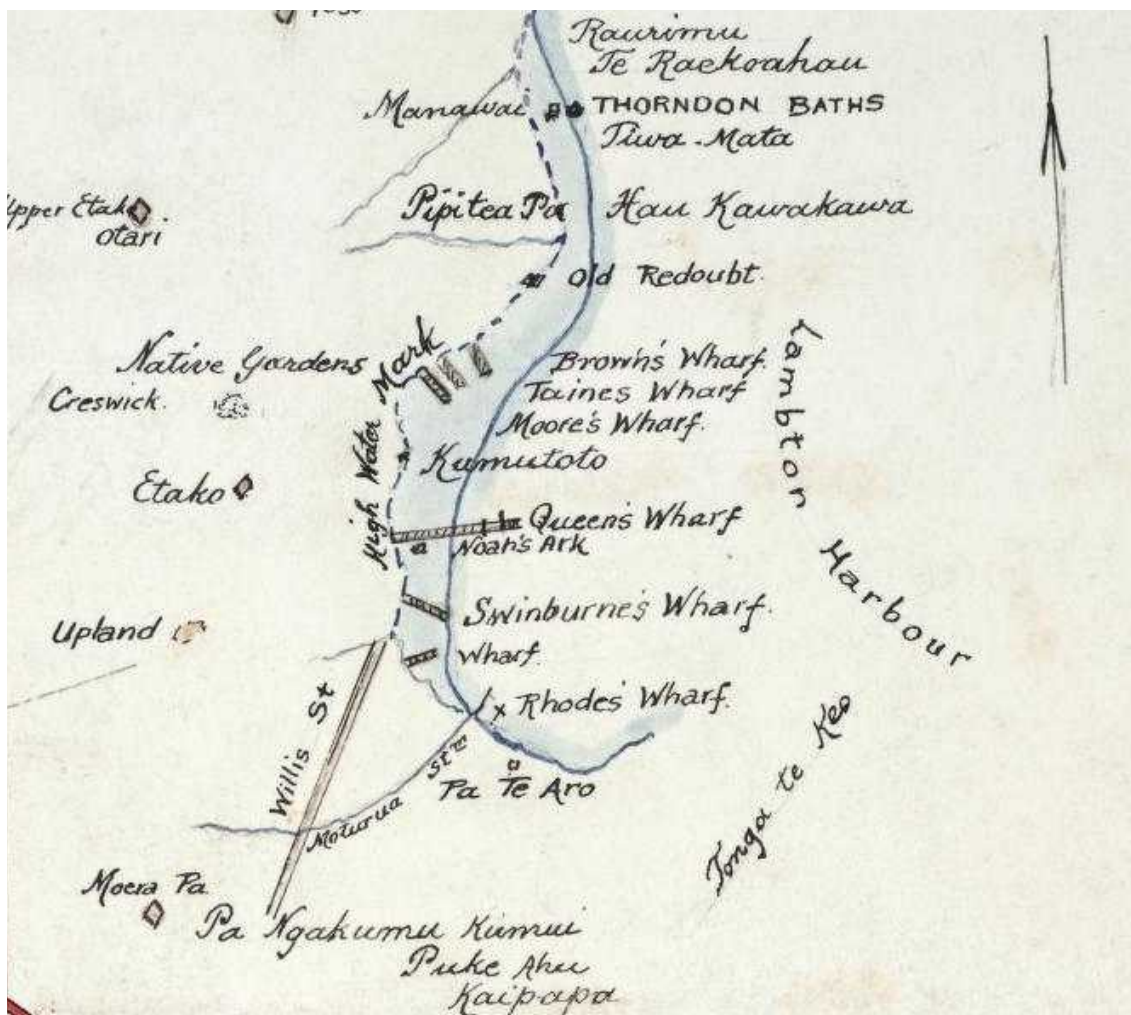 Raurimu
Te Raekoahau
Manawai
THORNDON BATHS
Tiwa-Mata
Upper Etako
otari
Pipitea Pa
Hau Kawakawa
Old Redoubt.
Native Gardens
Creswick.
High Water Mark
Brown's Wharf.
Taines Wharf
Moore's Wharf.
Lambton Harbour
Kumutoto
Etako
Queen's Wharf
Noah's Ark
Swinburne's Wharf.
Upland
Wharf.
Rhodes' Wharf.
Willis St
Pa Te Aro
Stm
Tonga te Keo
Moera Pa.
Pa Ngakumu Kumui
Puke Ahu
Kaipapa